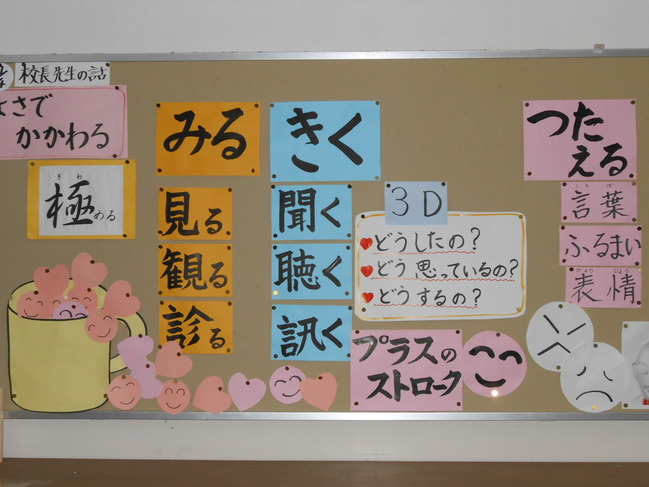 校長先生の話
さで
かかわる
きわ
極める
みる
見る
観る
診る
きく
聞く
聴く
訊く
3D
どうしたの?
どう思っているの?
どうするの?
プラスの
ストローク
つた
える
ことば
言葉
ふるまい
ひょうじょう
表情